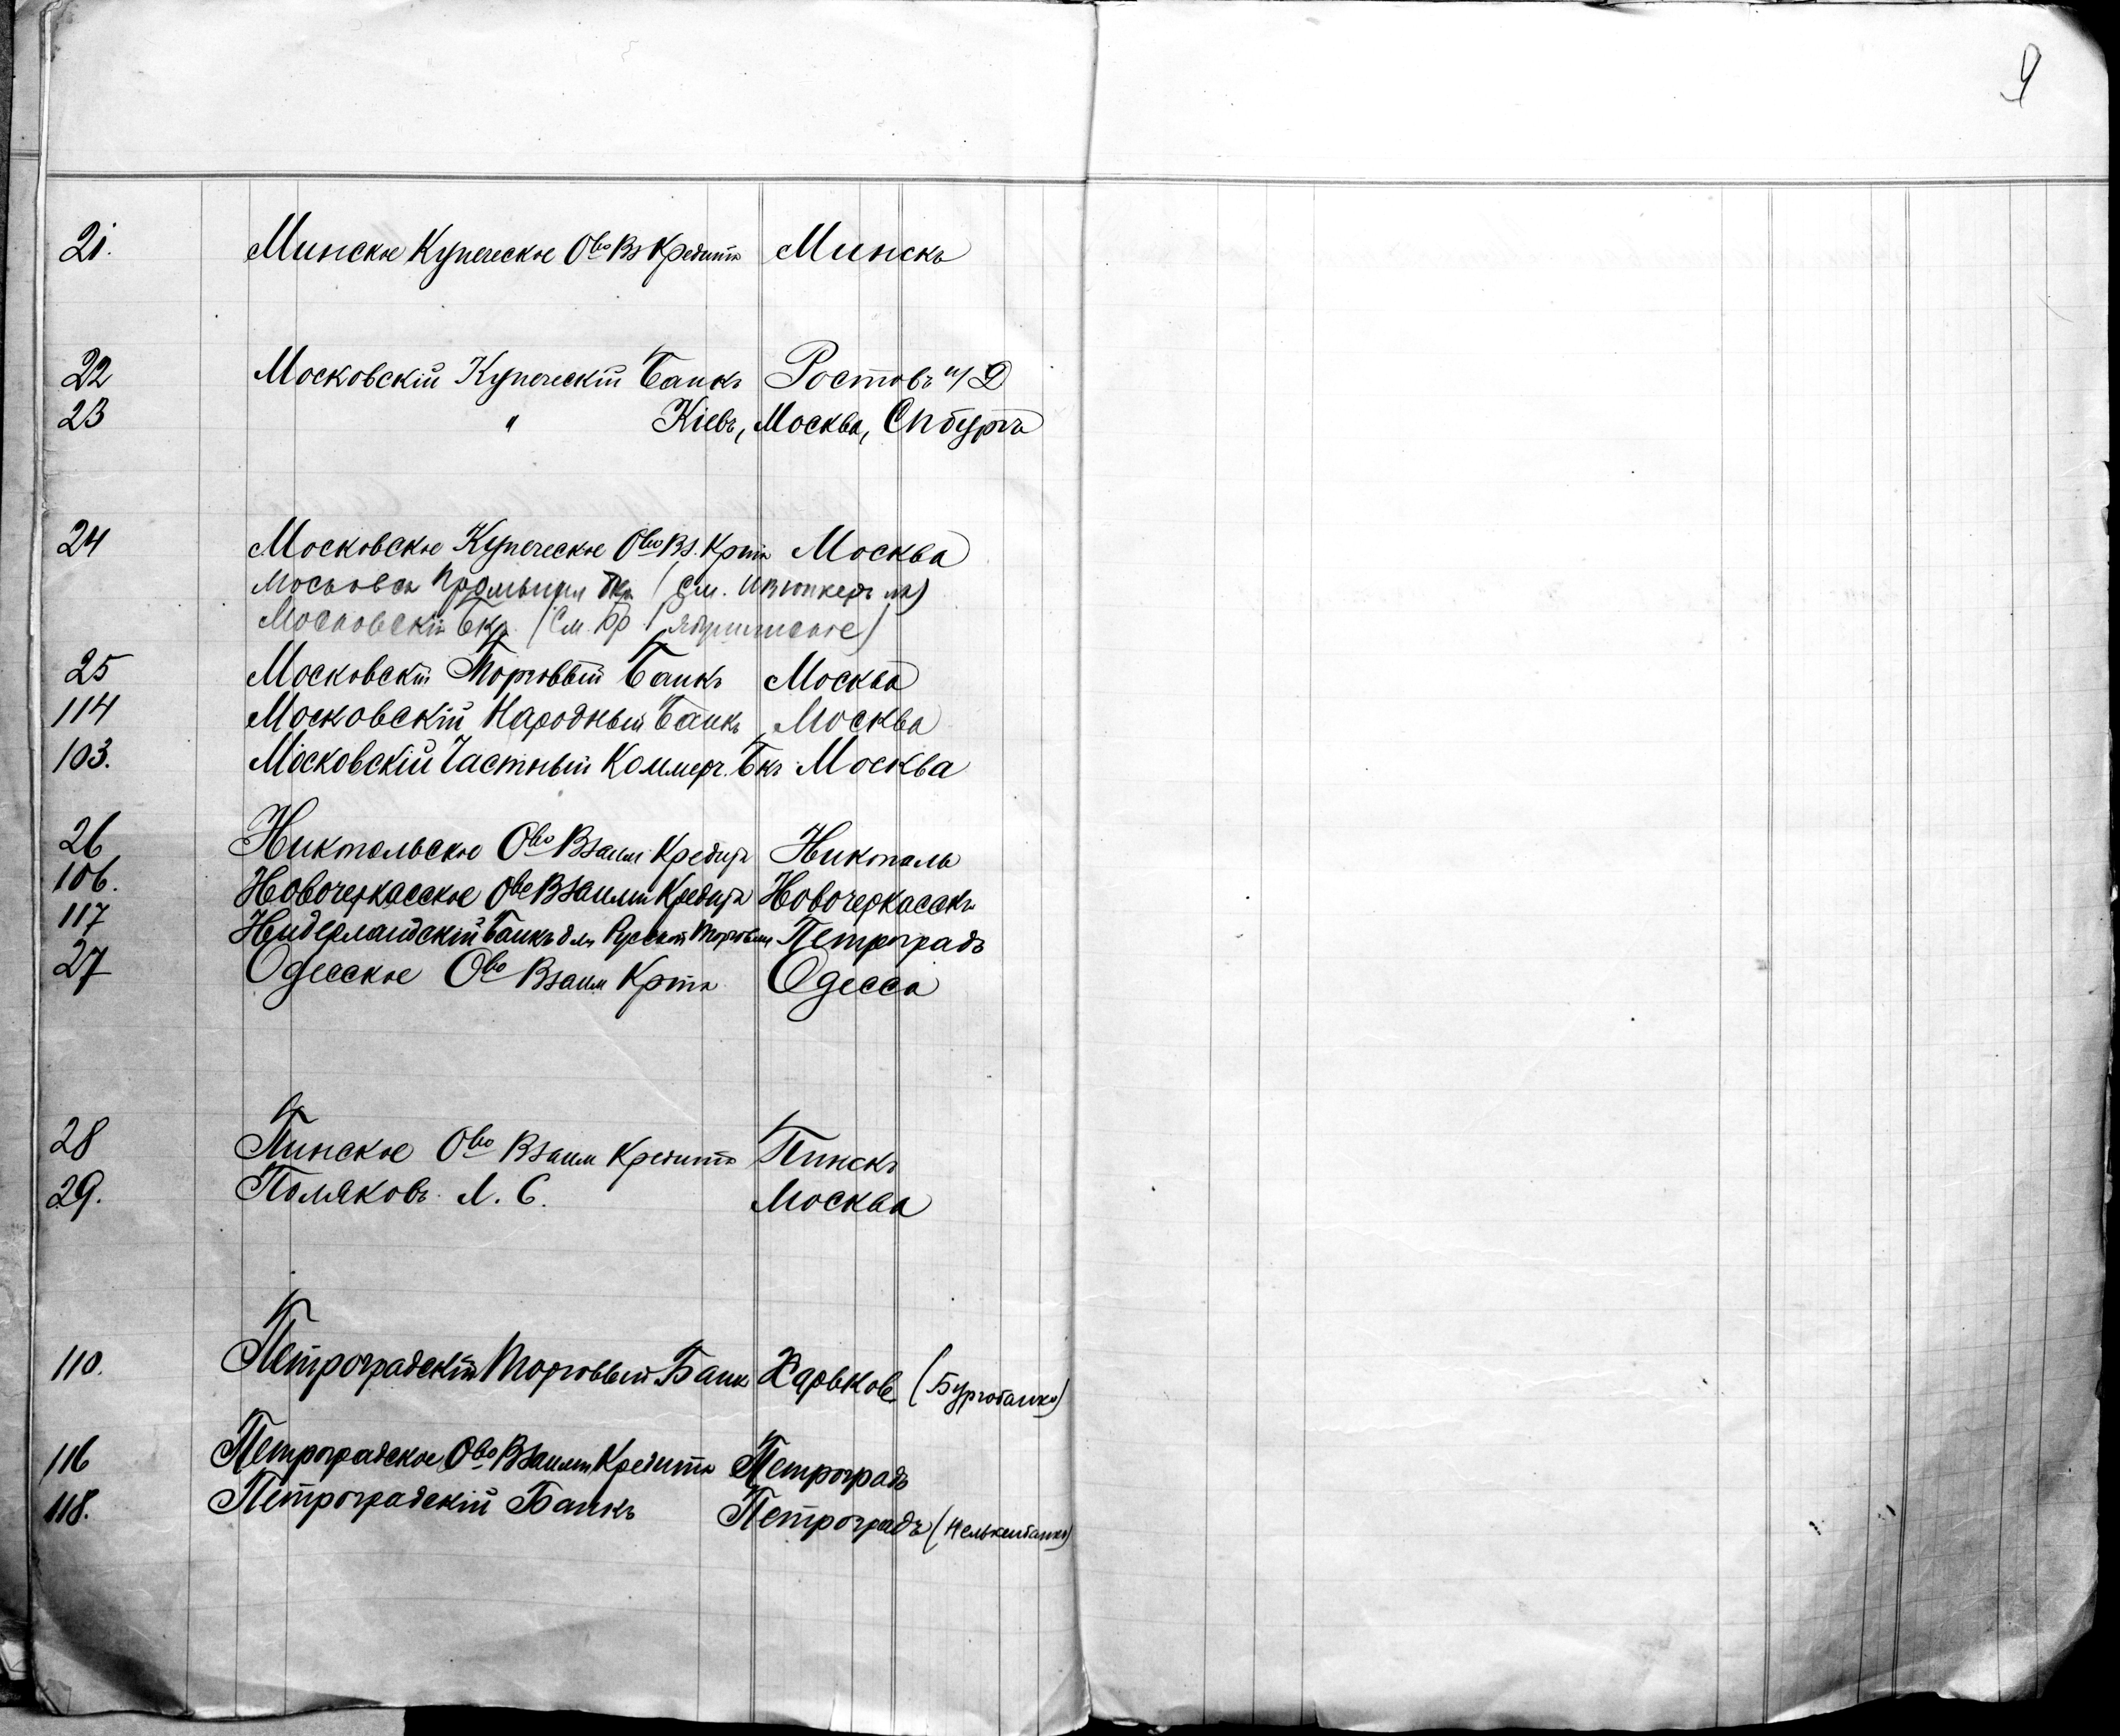 9
21. Минское Купеческое Ово Вз Кредита Минскъ
22 Московскій Купеческій Банкъ Ростовъ н/Д
23 " Кіевъ, Москва, Спбургъ
24 Московское Купеческое Ово Вз. Крта Москва
Московск Промышл Бкъ (См. И В Юнкеръ и Ко)
Московскій Бкъ (См. Бр Рябушинскіе)
25 Московскій Торговый Банкъ Москва
114 Московскій Народный Банкъ Москва
103. Московскій Частный Коммерч. Бкъ Москва
26 Никопольское Ово Взаим Кредита Никополь
106. Новочеркасское Ово Взаимн Кредита Новочеркасскъ
117 Нидерландскій Банкъ для Русской Торговли Петроградъ
27 Одесское Ово Взаим Крта Одесса
28 Пинское Ово Взаим Кредита Пинскъ
29. Поляковъ Л. С. Москва
110. Петроградскій Торговый Банк Харьков (Бургобанкъ)
116 Петроградское Ово Взаимн Кредита Петроградъ
118. Петроградскій Банкъ Петроградъ (Нелькенбанкъ)